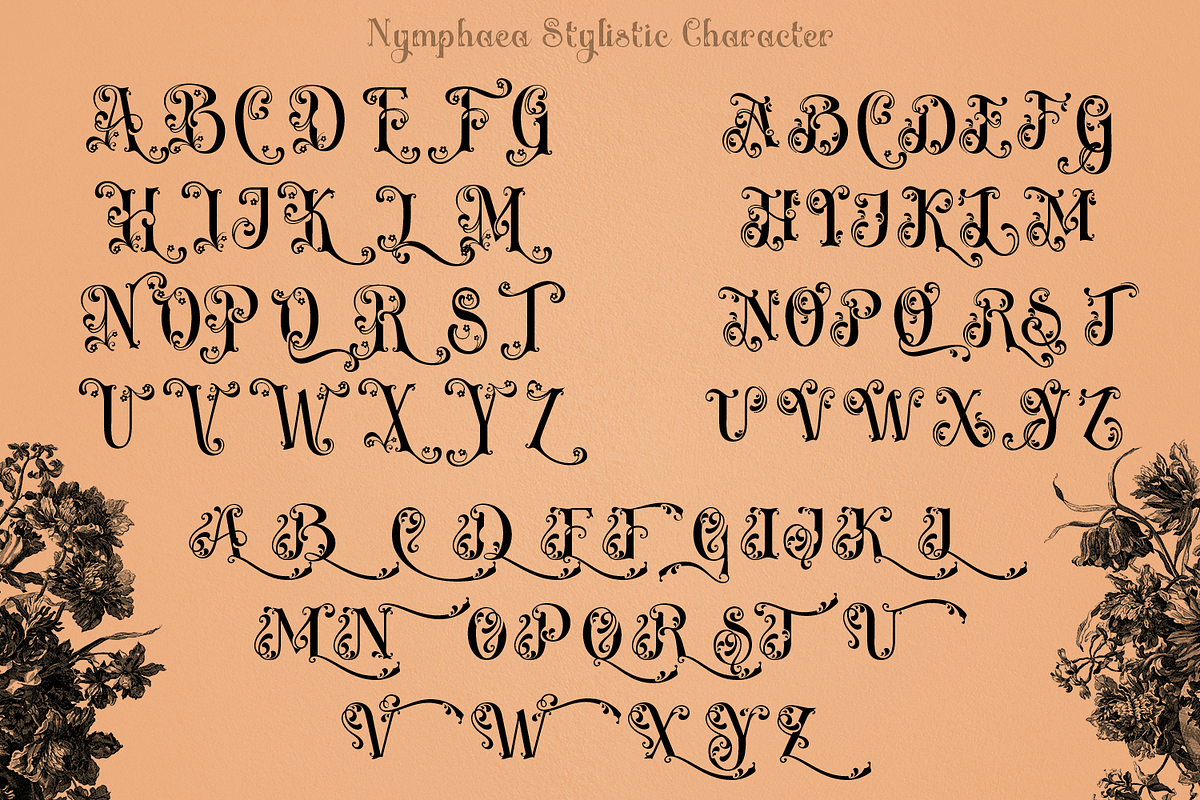 Nymphaea Stylistic Character
A B C D E F G
H I J K L M
N O P Q R S T
U V W X Y Z
A B C D E F G
H I J K L M
N O P Q R S T
U V W X Y Z
A B C D E F G I J K L
M N O P Q R S T U
V W X Y Z